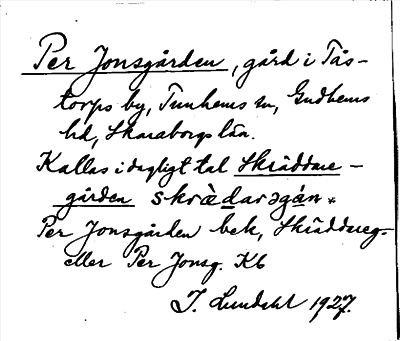 Per Jonsgården, gård i Tås-
torps by, Tunhems sn, Gudhems
hd, Skaraborgs län.
Kallas i dagligt tal Skräddare-
gården skrädaragán.
Per Jonsgården bek, Skräddareg.
eller Per Jonsg. Kb
J. Lundahl 1927.